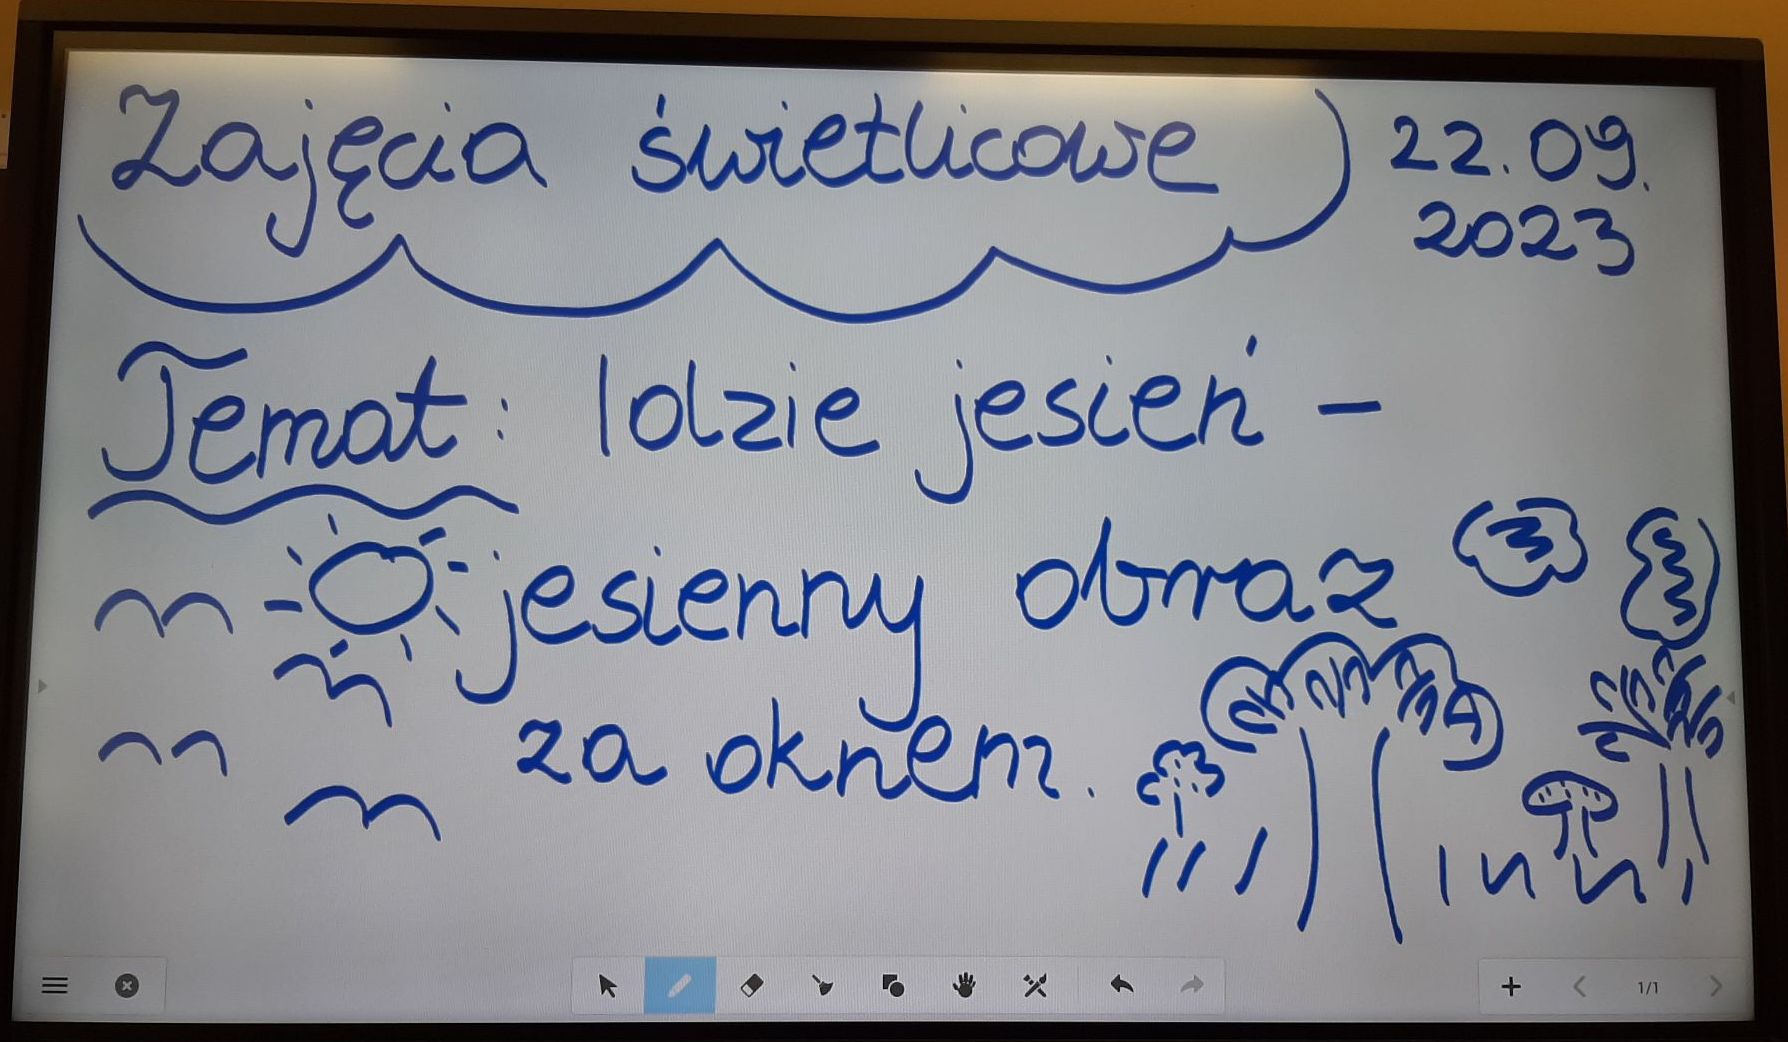 Zajęcia świetlicowe 22.09.
2023
Temat: Idzie jesień -
jesienny obraz
za oknem.
1/1